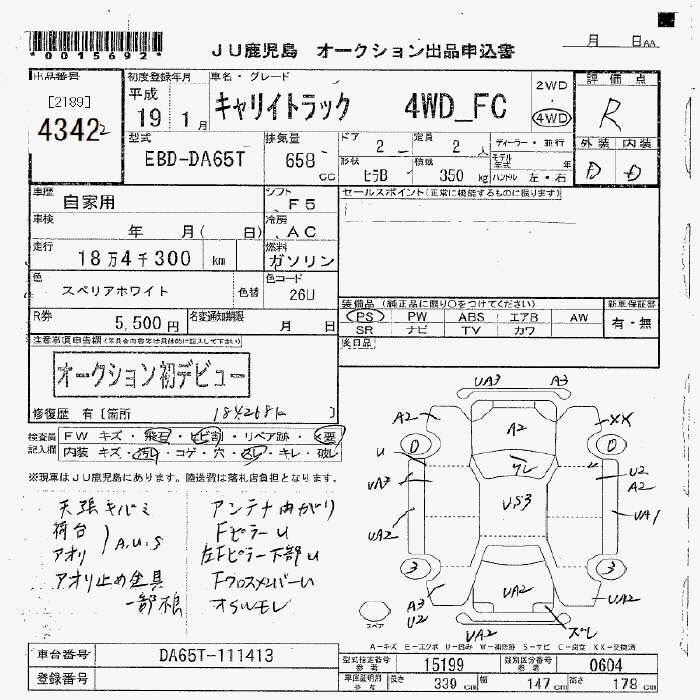 *0015692*
JU鹿児島 オークション出品申込書
月 日AA
出品番号
[2189]
4342₂
初度登録年月
平成
19 1月
車名・グレード
キャリイトラック 4WD_FC
2WD
4WD
評価点
R
外装 内装
D D
型式
EBD-DA65T
排気量
658 cc
ドア
2
定員
2 人
形状
ヒラB
積載
350 kg
ディーラー・並行
モデル年式 年
ハンドル 左・右
車歴
自家用
シフト
F5
車検
年 月( 日)
冷房
AC
走行
18万4千300 km
燃料
ガソリン
色
スペリアホワイト
色替
色コード
26U
R券
5,500円
名変通知期限
月 日
セールスポイント(正常に機能するものに限ります)
装備品 (純正品に限り○をつけてください)
PS PW ABS エアB AW
SR ナビ TV カワ
新車保証書
有・無
後日品
注意事項申告欄(不具合内容等は具体的に記入して下さい)
オークション初デビュー
修復歴 有〔箇所 〕
184268k
検査員記入欄
FW キズ・飛石・ヒビ割・リペア跡・×要
内装 キズ・汚れ・コゲ・穴・スレ・キレ・破レ
※現車はJU鹿児島にあります。陸送費は落札店負担となります。
天張キバミ
荷台
アオリ
A.U.S
アオリ止め金具
一部損
アンテナ曲がり
FピラーU
左Fピラー下部U
FクロスメンバーU
オイルモレ
UA3 A3
A2 A2 XX
0 0
U ワレ
UA3 U2
A2
US3
UA2 UA1
3 3
A3
U2
UA2 UA2
スペア UA2 ズレ
A－キズ E－エクボ U－凹み W－補修跡 S－サビ C－腐食 XX－交換済
車台番号 DA65T-111413
登録番号
型式指定番号 参考 15199
類別区分番号 参考 0604
車庫証明用 参考 長さ 339 cm 幅 147 cm 高さ 178 cm